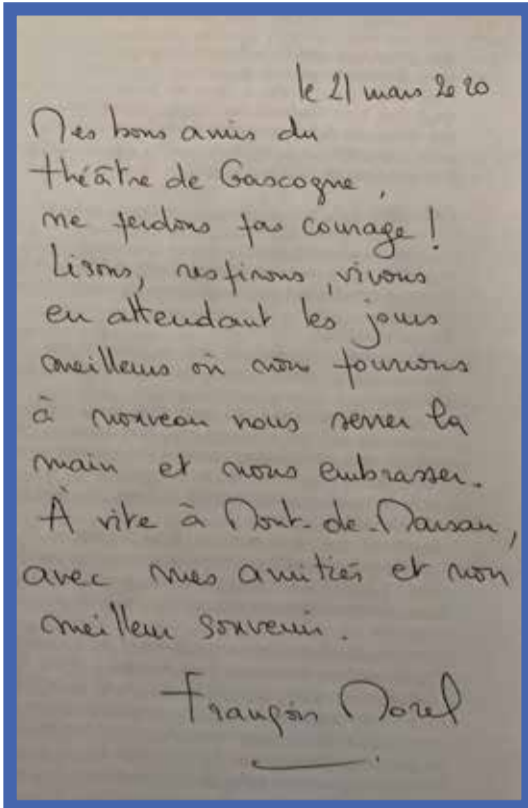 le 21 mars 2020
Mes bons amis du
théâtre de Gascogne,
ne perdons pas courage !
Lisons, respirons, vivons
en attendant les jours
meilleurs où nous pourrons
à nouveau nous serrer la
main et nous embrasser.
À vite à Mont-de-Marsan,
avec mes amitiés et mon
meilleur souvenir.
François Morel